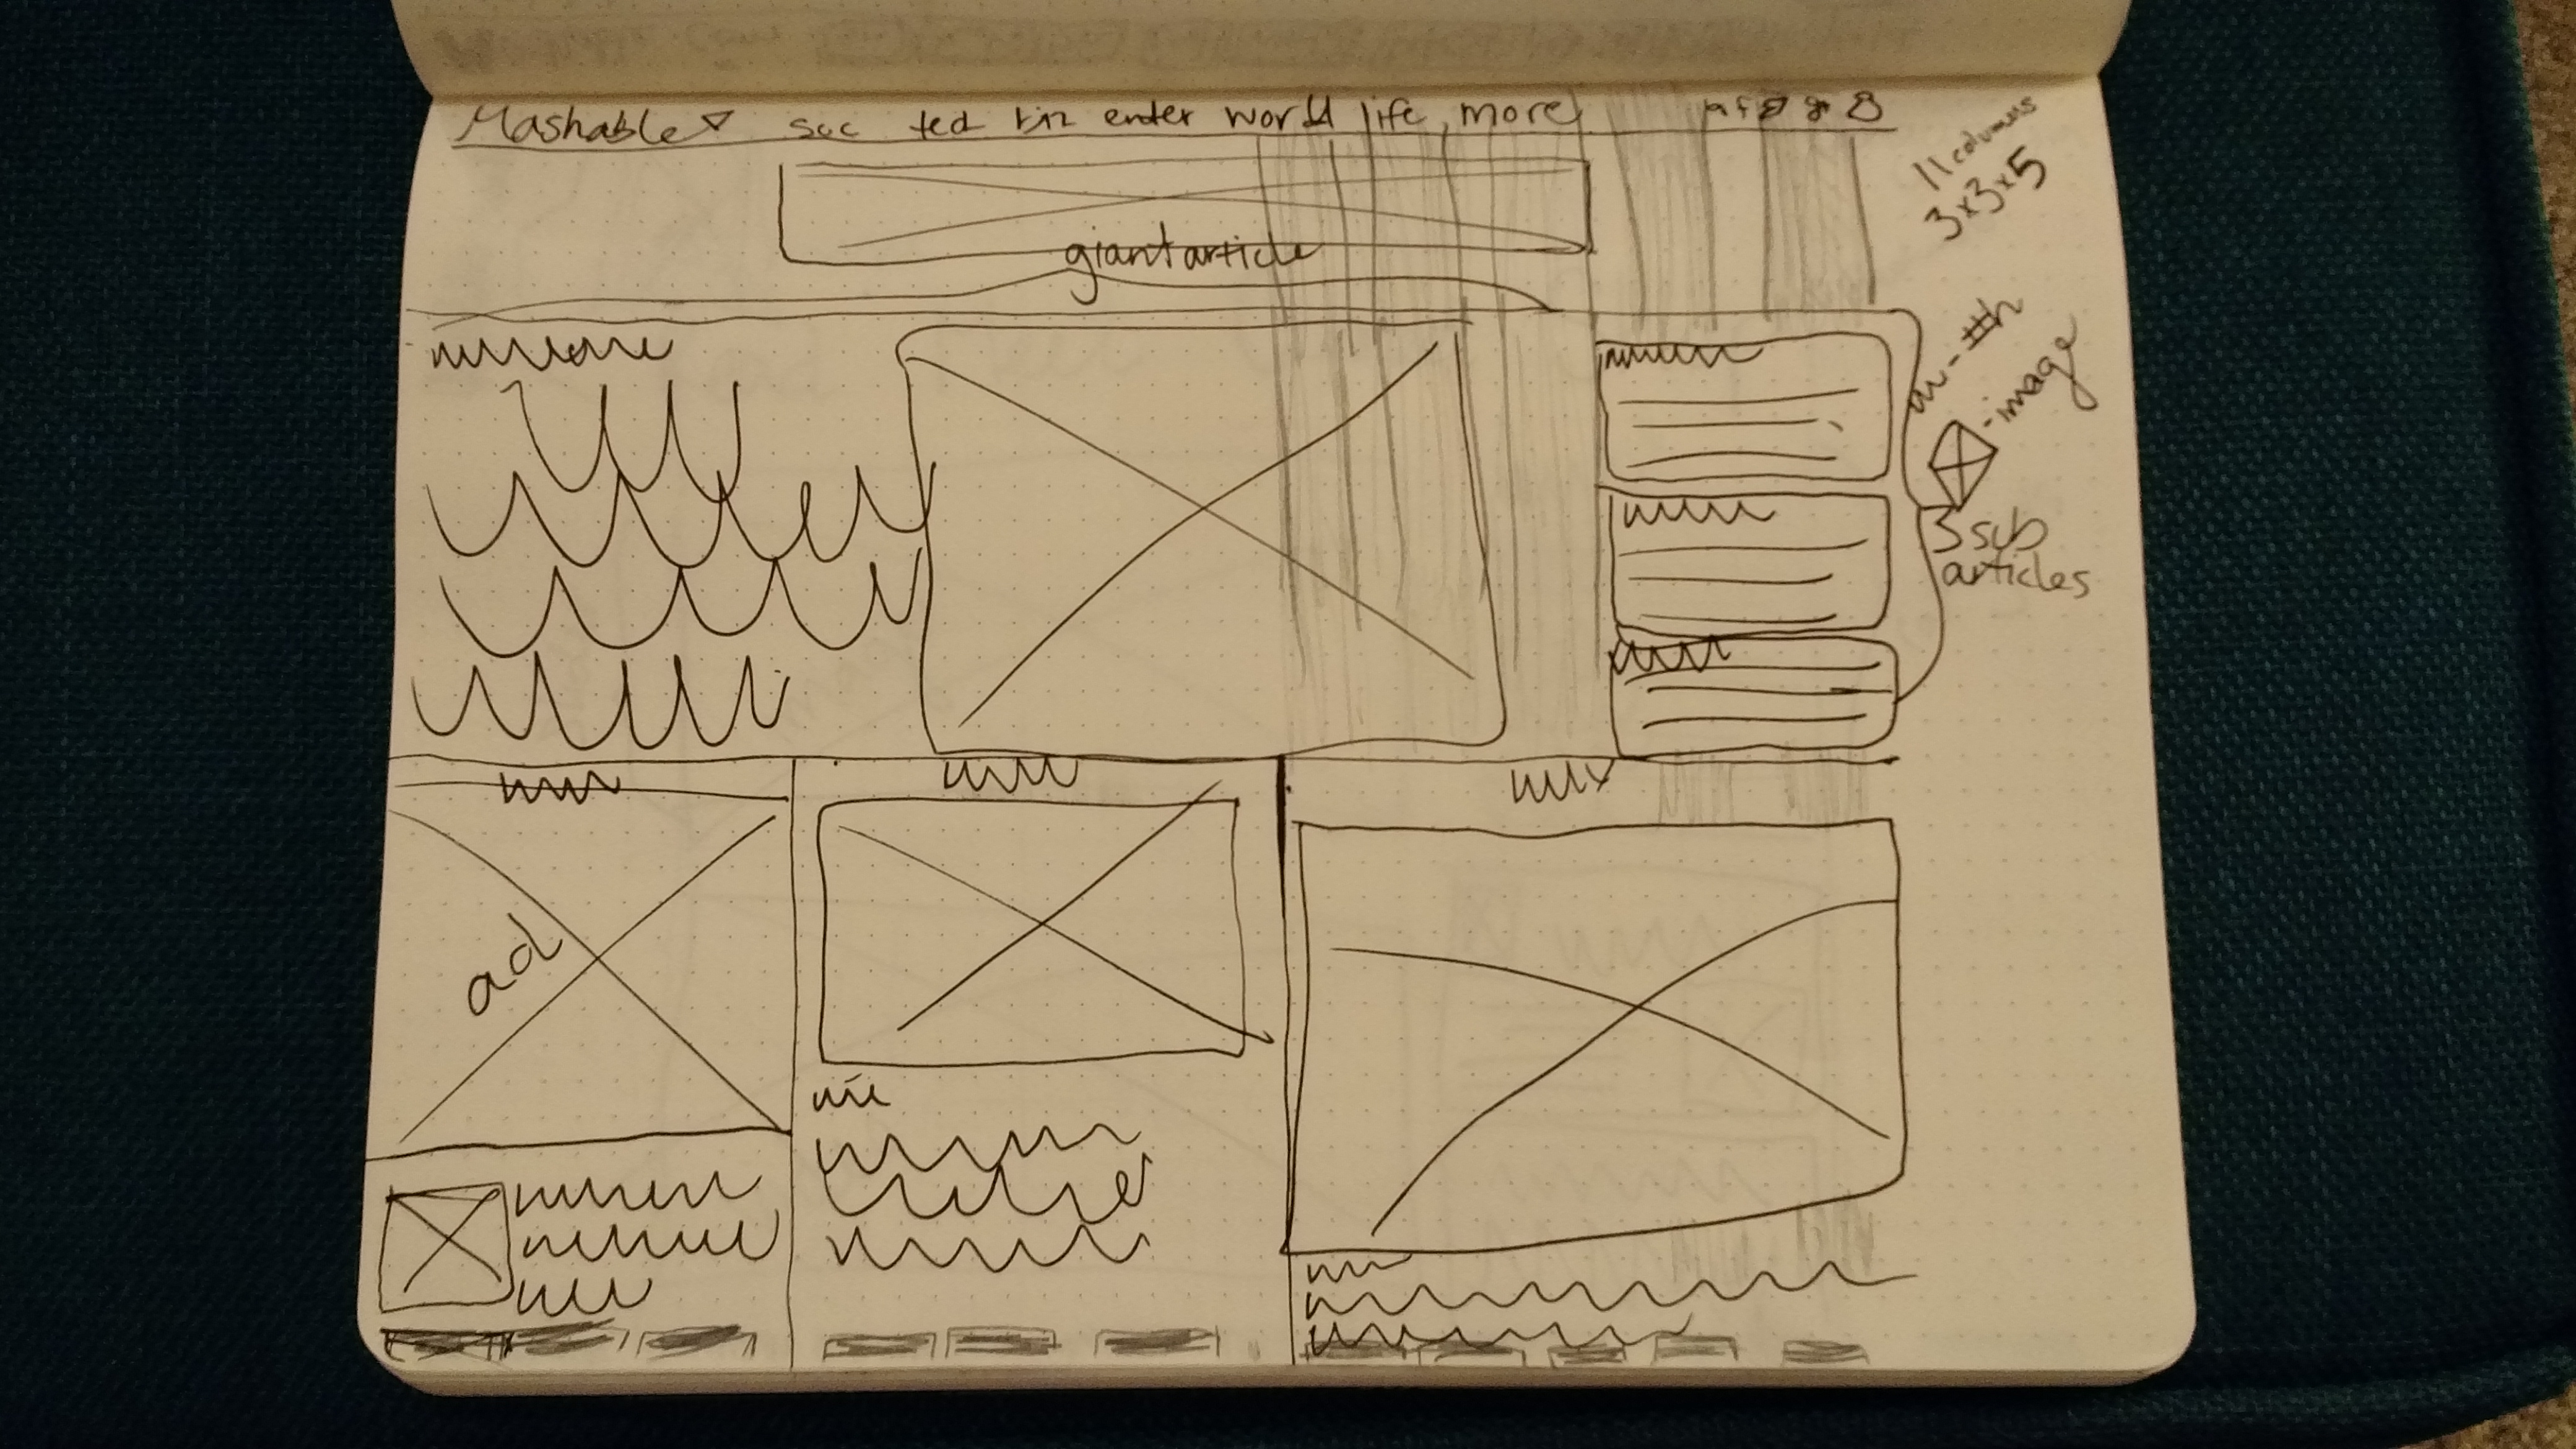 Mashable soc tech biz enter world life more
11 columns
3x3x5
giant article
- #h
- image
3 sub
articles
ad